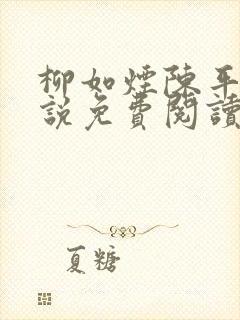 柳如煙陳平
說免費閱讀
夏糖